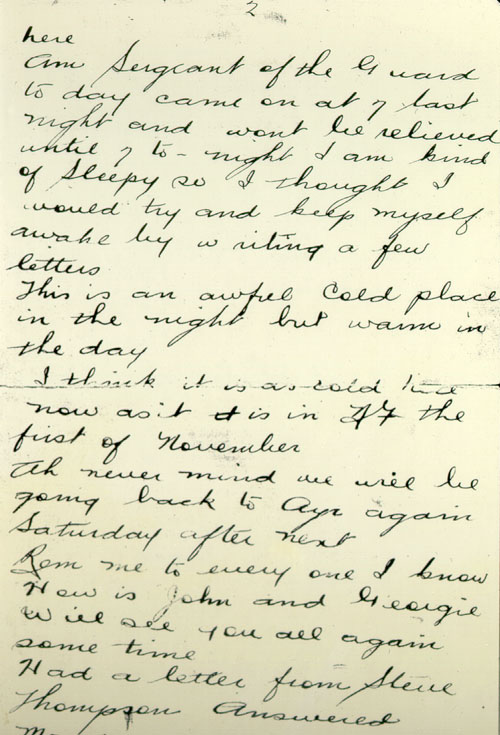 2
here
Am Sergeant of the Guard
to day came on at 7 last
night and wont be relieved
until 7 to-night I am kind
of Sleepy so I thought I
would try and keep myself
awake by writing a few
letters
This is an awful Cold place
in the night but warm in
the day
I think it is as cold here
now as it is in the
first of November
Ah never mind we will be
going back to Ayr again
Saturday after next
Rem me to every one I know
How is John and Georgie
Will see you all again
some time
Had a letter from Steve
Thompson Answered